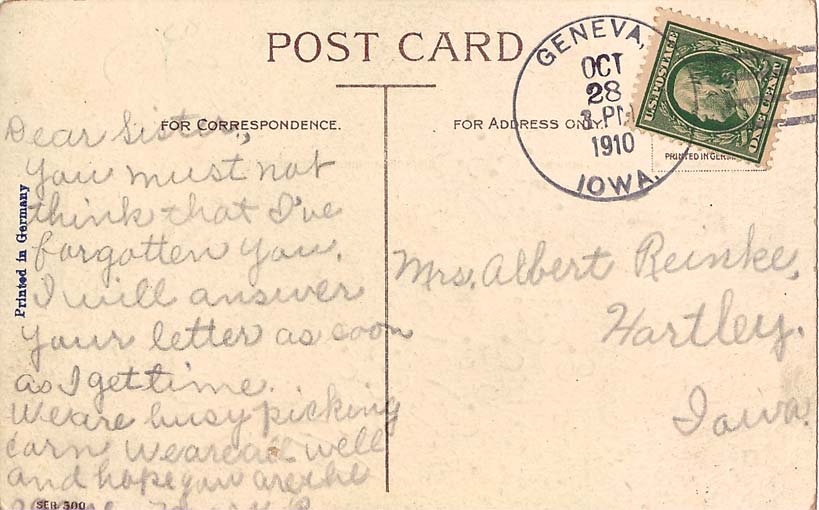 POST CARD
GENEVA,
OCT
28
3 PM
1910
IOWA.
U.S. POSTAGE
ONE CENT
FOR CORRESPONDENCE.
FOR ADDRESS ONLY.
PRINTED IN GER
Printed in Germany
Dear Sister,
You must not
think that I've
forgotten you.
I will answer
your letter as soon
as I get time.
We are busy picking
corn. We are all well
and hope you are the
SER 500
Mrs. Albert Reinke,
Hartley.
Iowa.